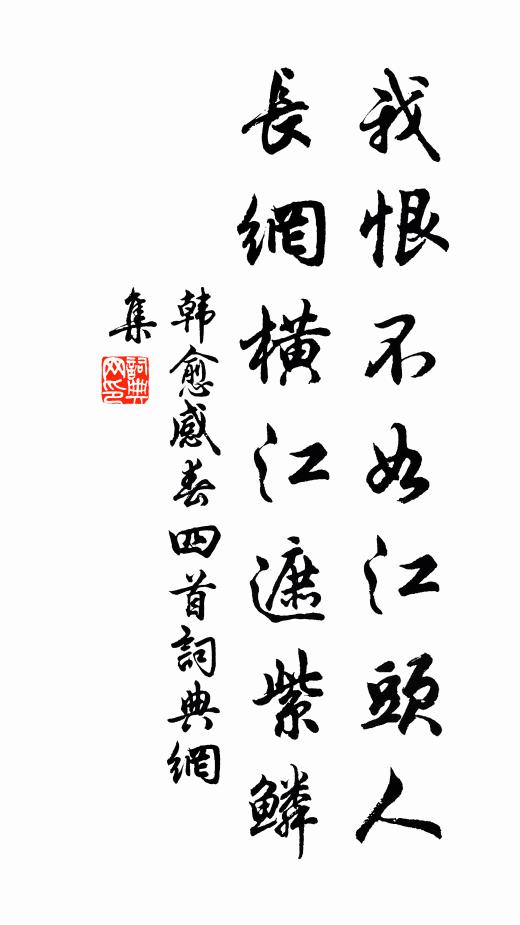 我恨不如江頭人
長網橫江遮紫鱗
韩愈感春四首詞典網
集
詞典網印